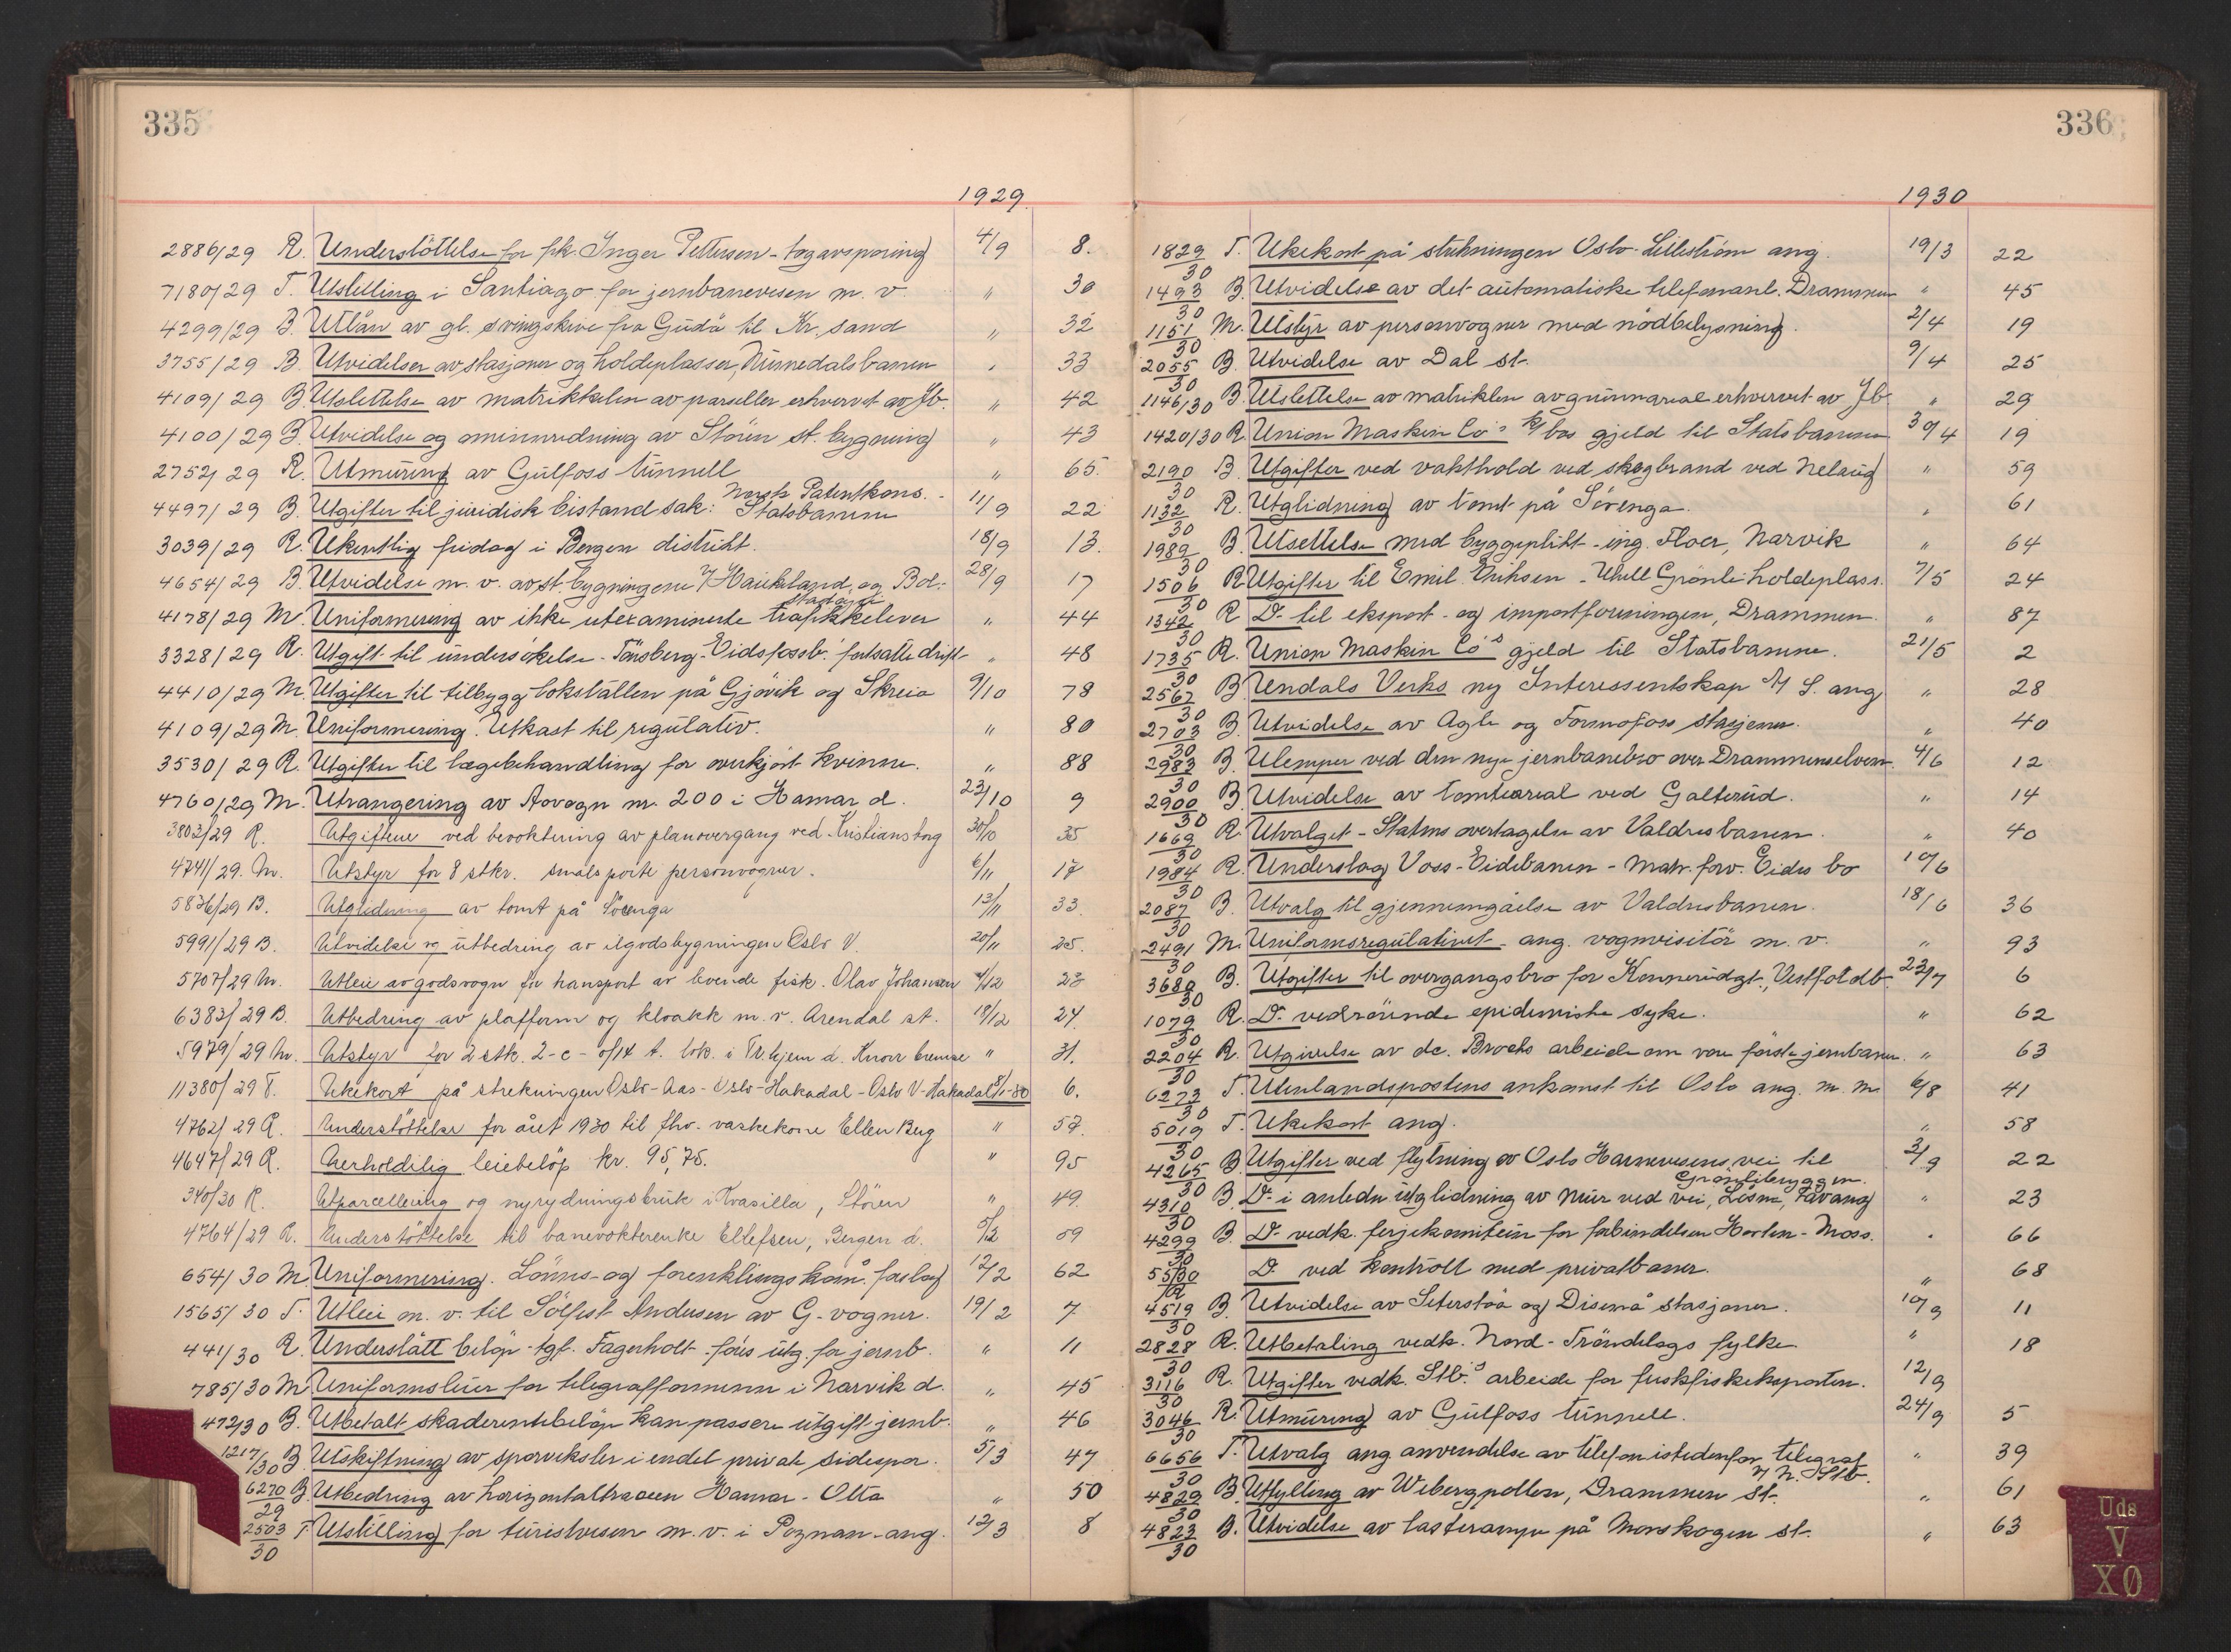 335
1929
2886/29 R. Understöttelse for frk. Inger Pettersen - togavsporing 4/9 8.
7180/29 T. Utstilling i Santiago for jernbanevesen m. v. " 30
4299/29 B. Utlån av gl. svingskive fra Gudå til Kr. sand " 32
3755/29 B. Utvidelser av stasjoner og holdeplasser, Numedalsbanen " 33
4109/29 B. Utslettelse av matrikkelen av parseller erhvervet av Jb. " 42
4100/29 B. Utvidelse og ominnredning av Stören st. bygning " 43
2752/29 R. Utmuring av Gulfoss tunnell " 65.
Norsk Patentkons. -
4497/29 B. Utgifter til juridisk bistand sak: Statsbanene 11/9 22
3039/29 R. Ukentlig fridag i Bergen distrikt. 18/9 13.
4654/29 B. Utvidelse m. v. av st. bygningene Haukeland og Bol- 28/9 17
stad
4178/29 M. Uniformering av ikke uteksaminerte trafikkelever " 44
3328/29 R. Utgift til undersökelse - Tönsberg-Eidsfossb. fortsatte drift " 48
4410/29 M. Utgifter til tilbygg lokstallen på Gjövik og Skreia 9/10 78
4109/29 M. Uniformering. Utkast til regulativ. " 80
3530/29 R. Utgifter til lægebehandling for overkjört kvinne. " 88
4760/29 M. Utrangering av Aovogn nr. 200 i Hamar d. 23/10 9
3803/29 R. Utgiftene ved bevoktning av planovergang ved Kristiansborg 30/10 35
4741/29. M. Utstyr for 8 stkr. smalsporte personvogner. 6/11 17
5836/29 B. Utglidning av tomt på Sörenga 13/11 33.
5991/29 B. Utvidelse og utbedring av ilgodsbygningen Oslo V. 20/11 25.
5707/29 M. Utleie av godsvogn for transport av levende fisk. Olav Johansen 4/12 23
6383/29 B. Utbedring av plattform og kloakk m. v. Arendal st. 18/12 24.
5979/29 M. Utstyr for 2 stk. 2-c- lok. i Tr.hjem d. Knorr bremse " 31.
11380/29 T. Ukekort på strekningen Oslo-Aas-Oslo-Hakadal-Oslo V-Hakadal 8/1-30 6.
4762/29 R. Understöttelse for året 1930 til fhv. vaskekone Ellen Berg " 57.
4647/29 R. Uerholdilig leiebelöp kr. 95,75. " 95
340/30 R. Utparcellering og nyrydningsbruk i Kvasilla, Stören " 49.
4764/29 R. Understöttelse til banevokterenke Ellefsen, Bergen d. 5/2 59
654/30 M. Uniformering. Lönns- og forenklingskom. forslag 12/2 62
1565/30 T. Utleie m. v. til Sölfest Andersen av G-vogner. 19/2 7
441/30 R. Underslått belöp - tgf. Fagerholt - föres utg. for jernb. " 11
785/30 M. Uniformsluer for telegrafformenn i Narvik d. " 45
472/30 B. Utbetalt skaderentebelöp kan passere utgift jernb. " 46
1217/30 B. Utskiftning av sporveksler i endel private sidespor. 5/3 47
6270/29 B. Utbedring av horizontaltraceen Hamar - Otta " 50
2503/30 T. Utstilling for turistvesen m. v. i Poznan - ang. 12/3 8
336
1930
1829/30 T. Ukekort på strekningen Oslo-Lilleström ang. 19/3 22
1493/30 B. Utvidelse av det automatiske telefonanl. Drammen " 45
1151/30 M. Utstyr av personvogner med nödbelysning. 2/4 19
2055/30 B. Utvidelse av Dal st. 9/4 25
1146/30 B. Utslettelse av matriklen av grunnareal erhvervet av Jb " 29
1420/30 R. Union Maskin Co's k/bos gjeld til Statsbanene 30/4 19
2190/30 B. Utgifter ved vakthold ved skogbrand ved Nelaug " 59
1132/30 R. Utglidning av tomt på Sörenga. " 61
1989/30 B. Utsettelse med byggeplikt - ing. Floer, Narvik " 64
1506/30 R. Utgifter til Emil Eriksen - Uhell Grönli holdeplass. 7/5 24
1342/30 R. Do til eksport- og importforeningen, Drammen. " 87
1735/30 R. Union Maskin Co's gjeld til Statsbanene. 21/5 2
2567/30 B. Undals Verks ny Interessentskap A/S. ang " 28
2703/30 B. Utvidelse av Agle og Formofoss stasjoner. " 40
2983/30 B. Ulemper ved den nye jernbanebro over Drammenselven. 4/6 12
2900/30 B. Utvidelse av tomteareal ved Galterud. " 14
1669/30 R. Utvalget - Statens overtagelse av Valdresbanen. " 40
1984/30 R. Underslag Voss-Eidebanen - Matr. forv. Eides bo 10/6
2087/30 B. Utvalg til gjennemgåelse av Valdresbanen. 18/6 36
2491/30 M. Uniformsregulativet - ang. vognvisitör m. v. " 93
3689/30 B. Utgifter til overgangsbro for Konnerudgt., Vestfoldb. 23/7 6
1079/30 R. Do vedrörende epidemiske syke. " 62
2204/30 R. Utgivelse av dc. Brochs arbeide om vore förste jernbaner. " 63
6273/30 T. Utenlandspostens ankomst til Oslo ang. m. m 6/8 41
5019/30 T. Ukekort ang. " 58
4265/30 B. Utgifter ved flytning av Oslo Havnevesens vei til 3/9 22
Grönlibryggen.
4310/30 B. Do i anledn utglidning av mur ved vei, Losna, Fåvang " 23
4299/30 B. Do vedk. ferjekomiteen for forbindelsen Horten-Moss. " 66
55/30 R Do ved kontroll med privatbaner. " 68
4519/30 B. Utvidelse av Seterstöa og Disenå stasjoner. 10/9 11
2828/30 R. Utbetaling vedk. Nord-Tröndelags fylke " 18
3116/30 R. Utgifter vedk. Stb.s arbeide for ferskfiskeksporten. 12/9
3046/30 R. Utmuring av Gulfoss tunnell. 24/9 5
6656/30 T. Utvalg ang. anvendelse av telefon istedenfor telegraf " 39
v/ N. Stb.
4829/30 B. Utfylling av Wibergpollen, Drammen st. " 61
4823/30 B. Utvidelse av lasterampe på Morskogen st. " 63
Uds
V
XØ